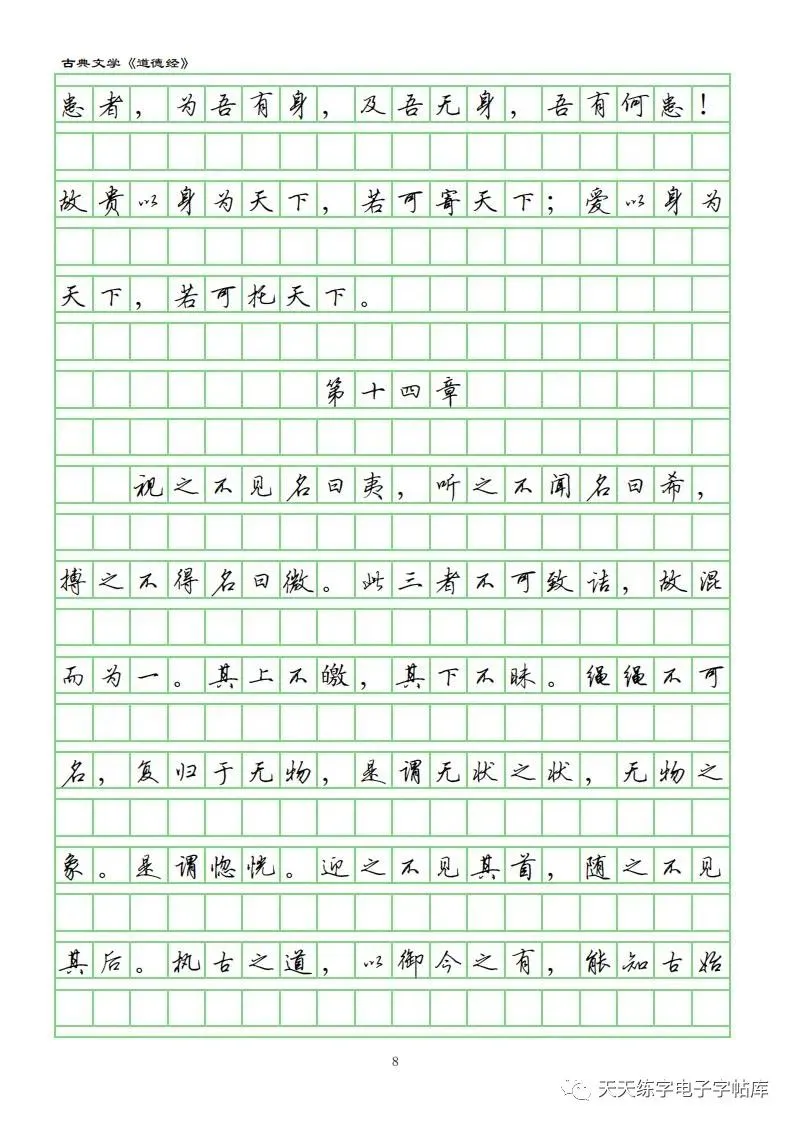 古典文学《道德经》
患者，为吾有身，及吾无身，吾有何患！
故贵以身为天下，若可寄天下；爱以身为
天下，若可托天下。
第十四章
视之不见名曰夷，听之不闻名曰希，
搏之不得名曰微。此三者不可致诘，故混
而为一。其上不皦，其下不昧。绳绳不可
名，复归于无物，是谓无状之状，无物之
象。是谓惚恍。迎之不见其首，随之不见
其后。执古之道，以御今之有，能知古始
8
天天练字电子字帖库